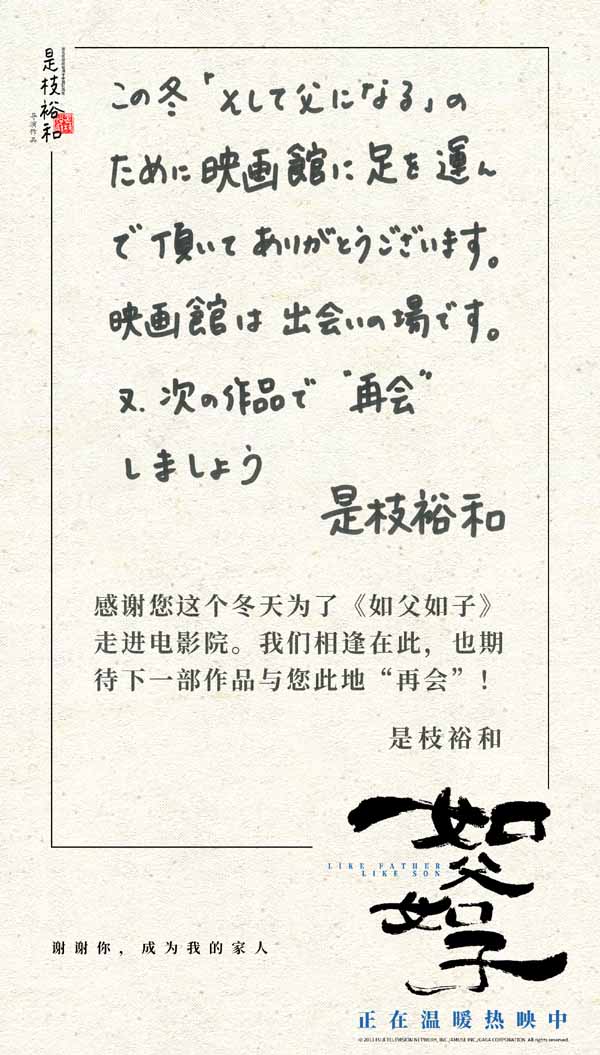 是枝裕和
导演作品
この冬「そして父になる」の
ために映画館に足を運ん
で頂いてありがとうございます。
映画館は出会いの場です。
又、次の作品で“再会”
しましょう
是枝裕和
感谢您这个冬天为了《如父如子》
走进电影院。我们相逢在此，也期
待下一部作品与您此地“再会”！
是枝裕和
如父如子
LIKE FATHER
LIKE SON
谢谢你，成为我的家人
正在温暖热映中
© 2013 FUJI TELEVISION NETWORK, INC./AMUSE INC./GAGA CORPORATION. All rights reserved.